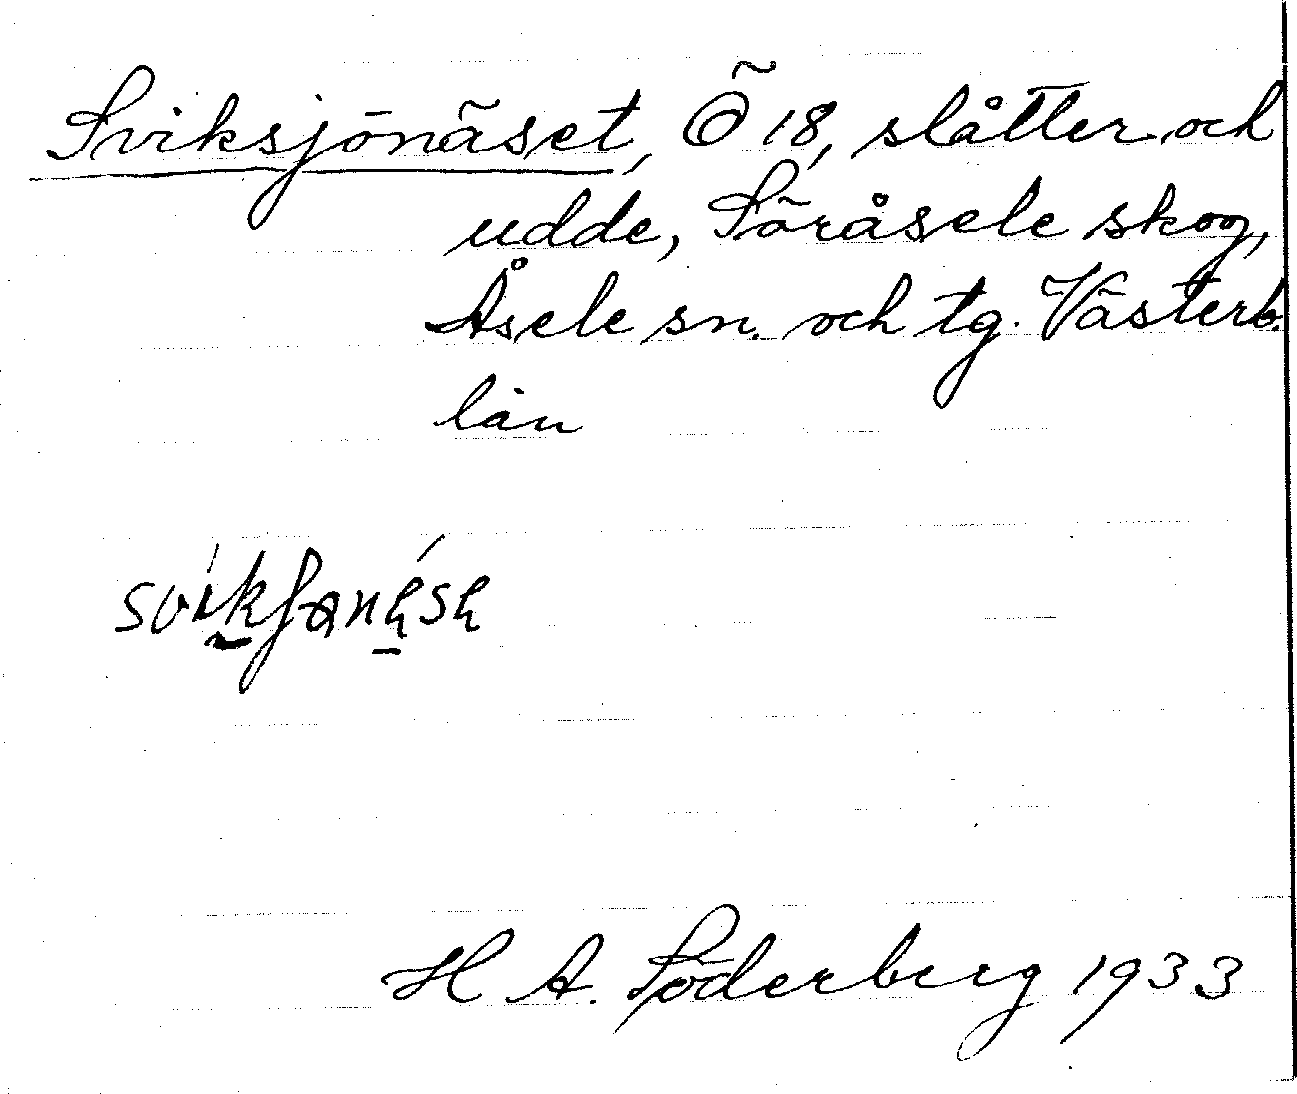 Sviksjönäset, Ö 18, slåtter och
udde, Söråsele skog,
Åsele sn. och tg. Västerb.
län
H A. Söderberg 1933